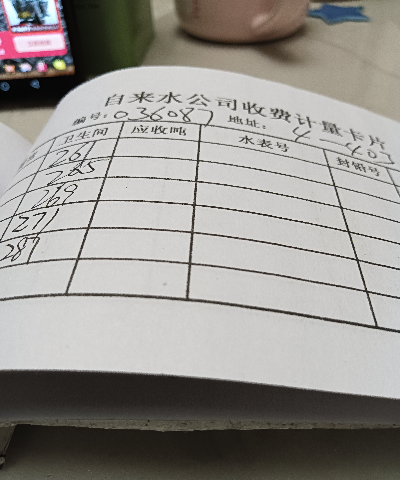 自来水公司收费计量卡片
编号:036087 地址: 4-403
卫生间 应收吨 水表号 封铅号
261
265
269
271
287